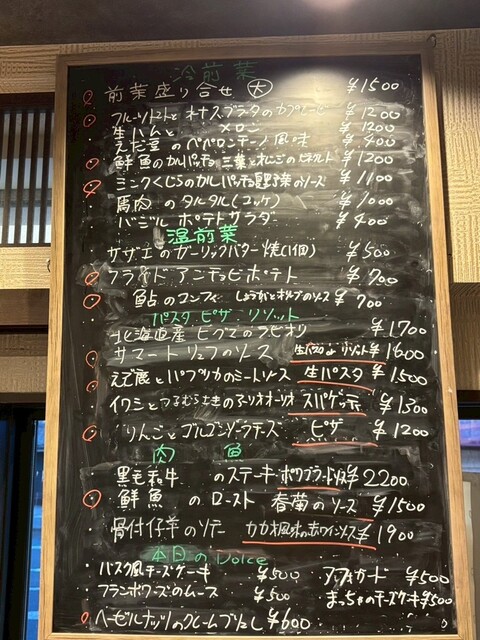 冷前菜
前菜盛り合せ 大 ¥1500
フルーツトマトと ブラータのカプレーゼ ¥1200
生ハムと メロン ¥1200
えだ豆のペペロンチーノ風味 ¥400
鮮魚のカルパッチョ 三葉と ¥1200
ミンクくじらのカルパッチョ のソース ¥1100
馬肉のタルタル(ユッケ) ¥1000
バジルポテトサラダ ¥400
温前菜
サザエのガーリックバター焼(1個) ¥500
フライドアンチョビポテト ¥700
鮎のコンフィ しょうがとオリーブのソース ¥700
パスタ ピザ リゾット
北海道産 のラビオリ ¥1700
サマートリュフのソース 生パスタ or リゾット ¥1600
えぞ鹿とパプリカのミートソース 生パスタ ¥1500
イワシと のアーリオオーリオ スパゲッティ ¥1300
りんごとゴルゴンゾーラチーズ ピザ ¥1200
肉 魚
黒毛和牛 のステーキ ¥2200
鮮魚 のロースト 春菊のソース ¥1500
骨付仔羊のソテー カカオ風味の赤ワインソース ¥1900
本日のDolce
バスク風チーズケーキ ¥500 アフォガード ¥500
フランボワーズのムース ¥500 まっちゃのチーズケーキ ¥500
ヘーゼルナッツのクレームブリュレ ¥600